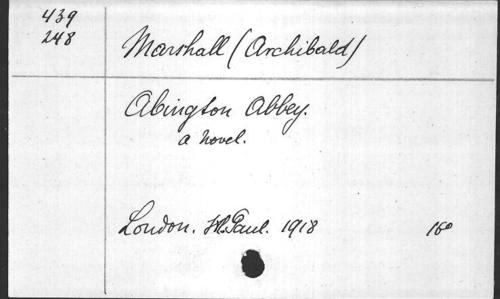 439
248
Marshall (Archibald)
Abington Abbey.
a novel.
London. St. Paul. 1918 16º